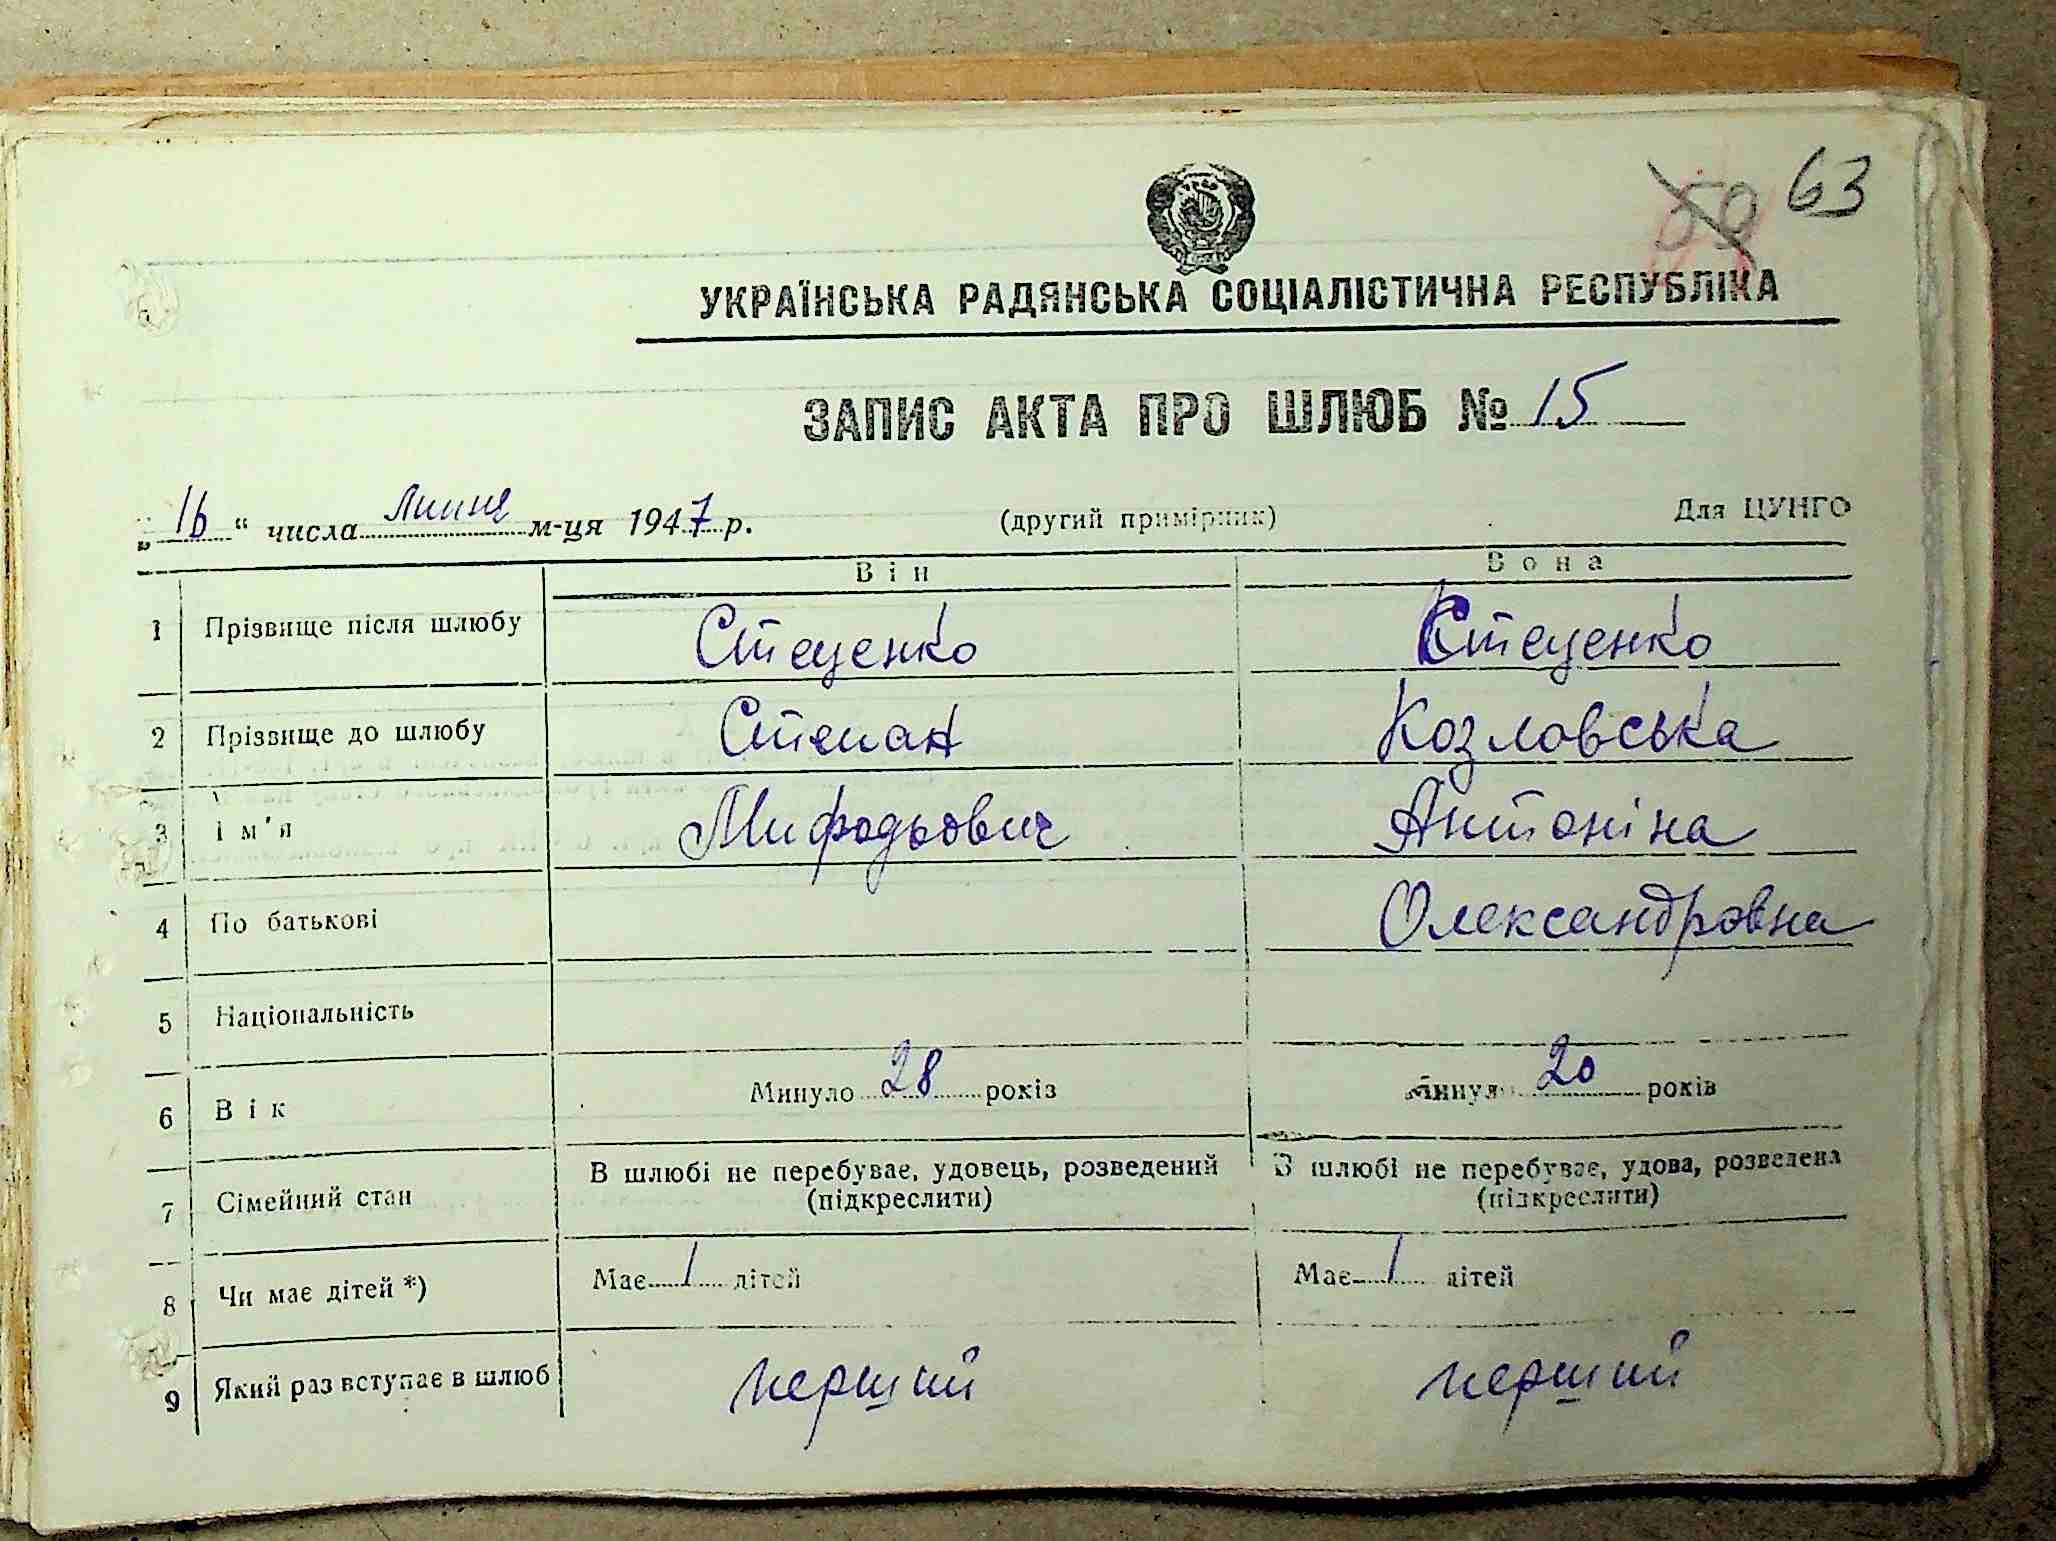 59 63
УКРАЇНСЬКА РАДЯНСЬКА СОЦІАЛІСТИЧНА РЕСПУБЛІКА
ЗАПИС АКТА ПРО ШЛЮБ № 15
„16“ числа липня м-ця 1947 р. (другий примірник) Для ЦУНГО
Він Вона
1 Прізвище після шлюбу Стеценко Стеценко
2 Прізвище до шлюбу Степан Козловська
3 Ім'я Мифодьович Антоніна
4 По батькові Олександровна
5 Національність
6 Вік Минуло 28 років Минуло 20 років
7 Сімейний стан В шлюбі не перебуває, удовець, розведений (підкреслити) В шлюбі не перебуває, удова, розведена (підкреслити)
8 Чи має дітей *) Має 1 дітей Має 1 дітей
9 Який раз вступає в шлюб перший перший